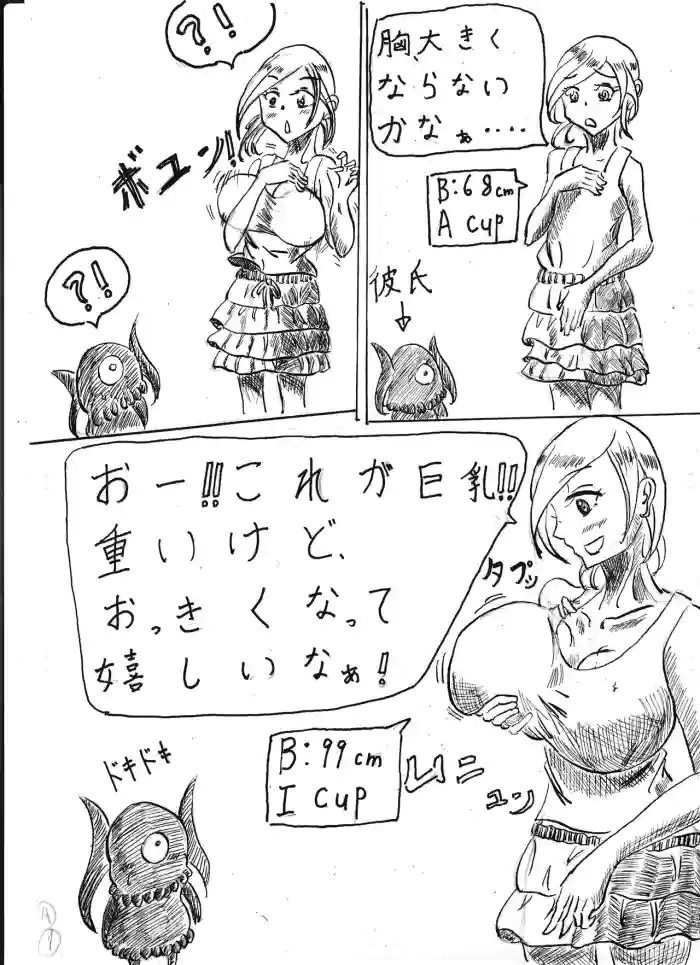 胸、大きく
ならない
かなぁ‥‥
B:68cm
A cup
彼氏
↓
?!
ボユン!
?!
おー!!これが巨乳!!
重いけど、
おっきくなって
嬉しいなぁ!
タプッ
B:99cm
I cup
ドキドキ